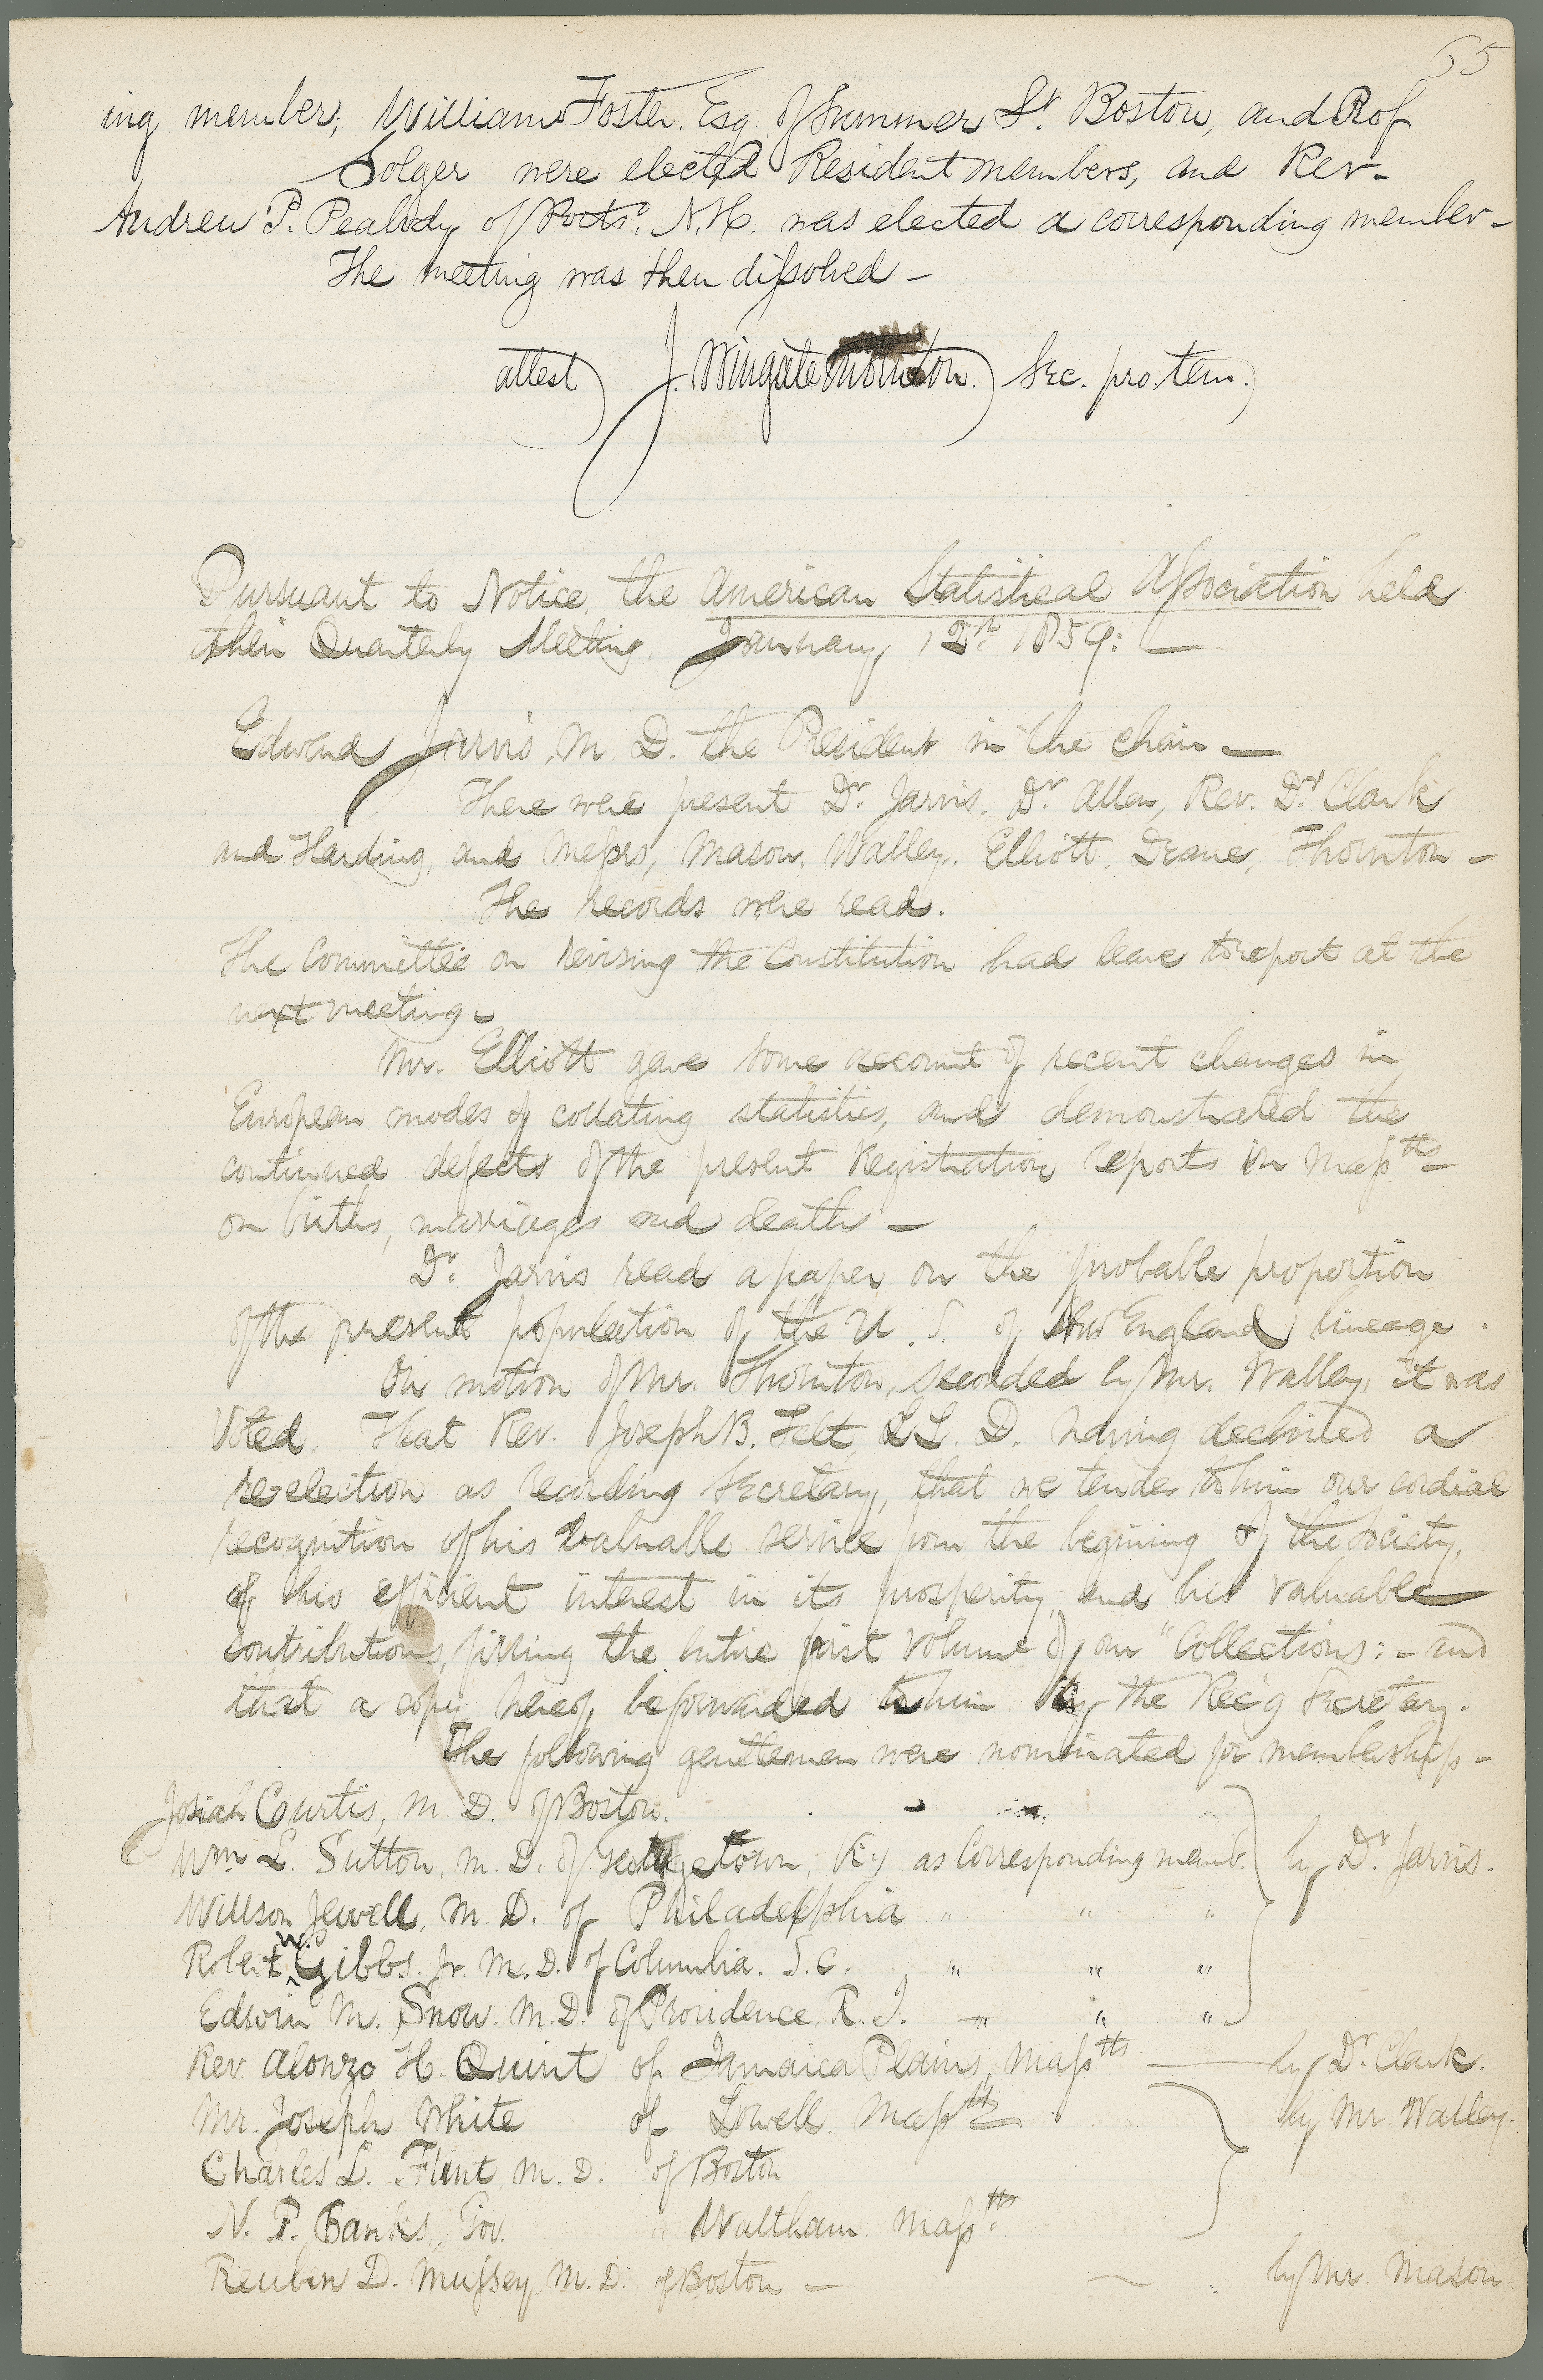 55
ing member; William Foster. Esq. of Summer St. Boston, and Prof
Solger were elected Resident members, and Rev-
Andrew P. Peabody of Ports. N.H. was elected a corresponding member-
The meeting was then dissolved-
attest) J. Wingate Thornton.) Sec. pro. tem.)
Pursuant to Notice, the American Statistical Association held
their Quarterly Meeting. January, 12th 1859:—
Edward Jarvis, M. D. the President in the chair—
There were present Dr. Jarvis, Dr. Allen, Rev. Drs Clark
and Harding, and Messrs, Mason, Walley, Elliott, Deane, Thornton-
The records were read.
The Committee on revising the Constitution had leave to report at the
next meeting.
Mr. Elliott gave some account of recent changes in
European modes of collating statistics, and demonstrated the
continued defects of the present Registration reports in Masstts-
on births, marriages and deaths-
Dr. Jarvis read a paper on the probable proportion
of the present population of the U. S. of New England lineage.
On motion of Mr. Thornton, seconded by Mr. Walley, it was
Voted. That Rev. Joseph B. Felt, LL. D. having declined a
re-election as recording Secretary, that we tender to him our cordial
recognition of his valuable service from the begining of the Society,
of his efficient interest in its prosperity, and his valuable
contributions, filling the entire first volume of our "Collections:- and
that a copy hereof be forwarded to him by the Rec'g Secretary.
The following gentlemen were nominated for membership-
Josiah Curtis, M. D. of Boston.
Wm L. Sutton, M. D. of Georgetown, Ky as Corresponding memb. by Dr. Jarvis.
Willson Jewell, M. D. of Philadelphia " " "
Robert W. Gibbs. Jr. M. D. of Columbia. S. C. " " "
Edwin M. Snow. M. D. of Providence. R. I. " " "
Rev. Alonzo H. Quint of Jamaica Plains, Masstts — by Dr. Clark.
Mr. Joseph White of Lowell. Masstts by Mr. Walley.
Charles L. Flint, M. D. of Boston
N. P. Banks, Gov. " Waltham Masstts.
Reuben D. Mussey, M. D. of Boston - by Mr. Mason